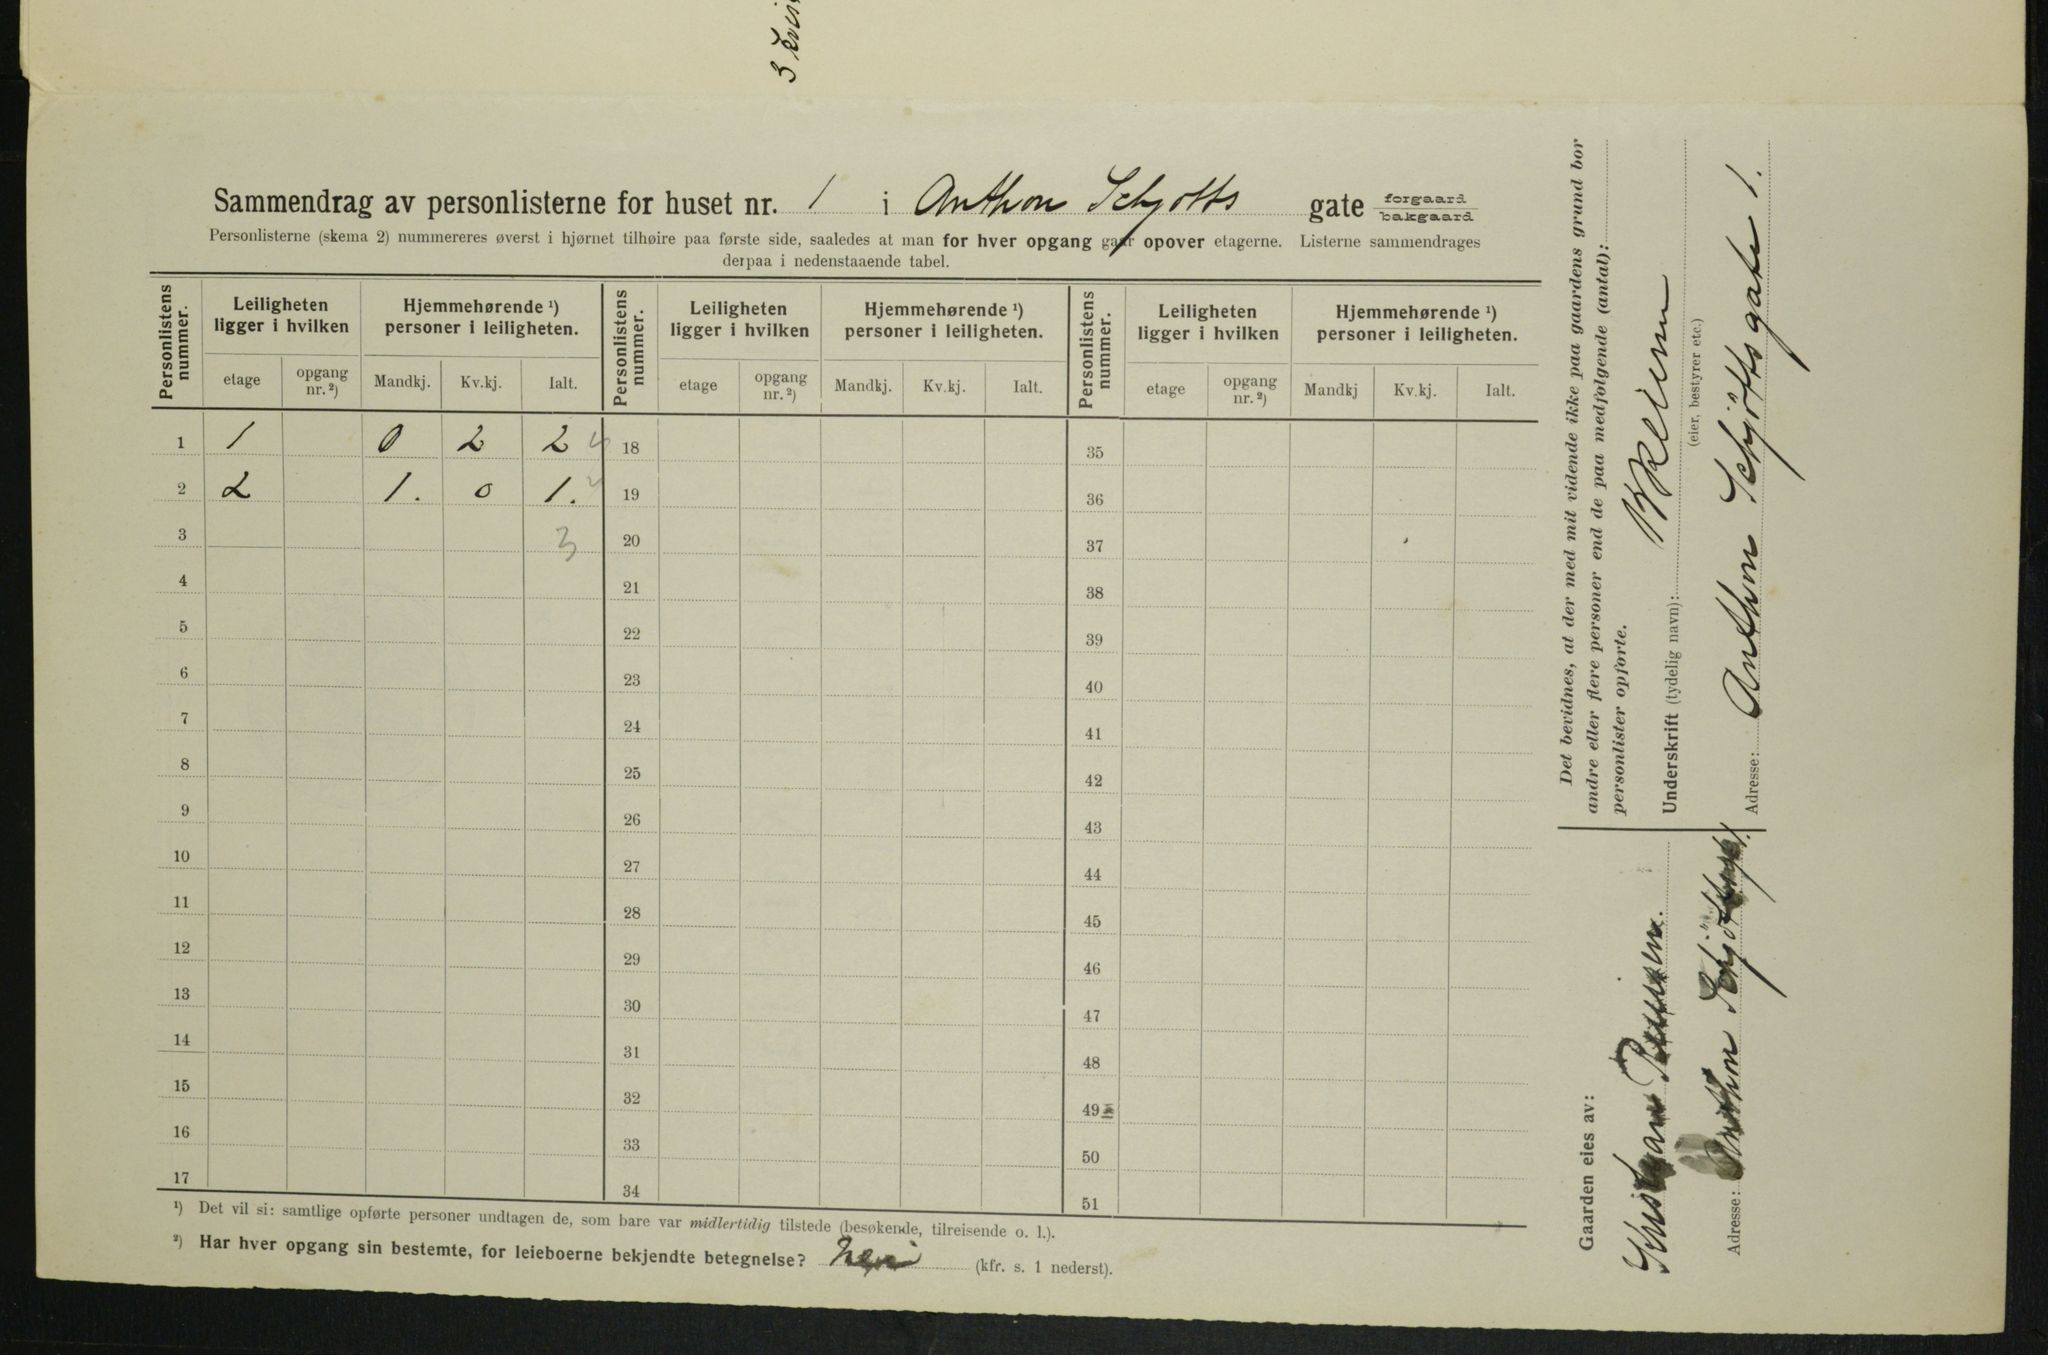 3 kvi
Sammendrag av personlisterne for huset nr. 1 i Anthon Schjøtts gate forgaard
bakgaard
Personlisterne (skema 2) nummereres øverst i hjørnet tilhøire paa første side, saaledes at man for hver opgang gaar opover etagerne. Listerne sammendrages
derpaa i nedenstaaende tabel.
Personlistens nummer. Leiligheten ligger i hvilken Hjemmehørende ¹) personer i leiligheten. Personlistens nummer. Leiligheten ligger i hvilken Hjemmehørende ¹) personer i leiligheten. Personlistens nummer. Leiligheten ligger i hvilken Hjemmehørende ¹) personer i leiligheten.
etage opgang nr. ²) Mandkj. Kv.kj. Ialt. etage opgang nr. ²) Mandkj. Kv.kj. Ialt. etage opgang nr. ²) Mandkj Kv.kj. Ialt.
1 1 0 2 2 18 35
2 2 1. 0 1. 19 36
3 3 20 37
4 21 38
5 22 39
6 23 40
7 24 41
8 25 42
9 26 43
10 27 44
11 28 45
12 29 46
13 30 47
14 31 48
15 32 49
16 33 50
17 34 51
¹) Det vil si: samtlige opførte personer undtagen de, som bare var midlertidig tilstede (besøkende, tilreisende o. l.).
²) Har hver opgang sin bestemte, for leieboerne bekjendte betegnelse? nei (kfr. s. 1 nederst).
Det bevidnes, at der med mit vidende ikke paa gaardens grund bor
andre eller flere personer end de paa medfølgende (antal):
personlister opførte.
Underskrift (tydelig navn):
(eier, bestyrer etc.)
Adresse: Anthon Schjøtts gate 1.
Gaarden eies av:
Kristian
Adresse: Anthon Schjøttsgt 1.